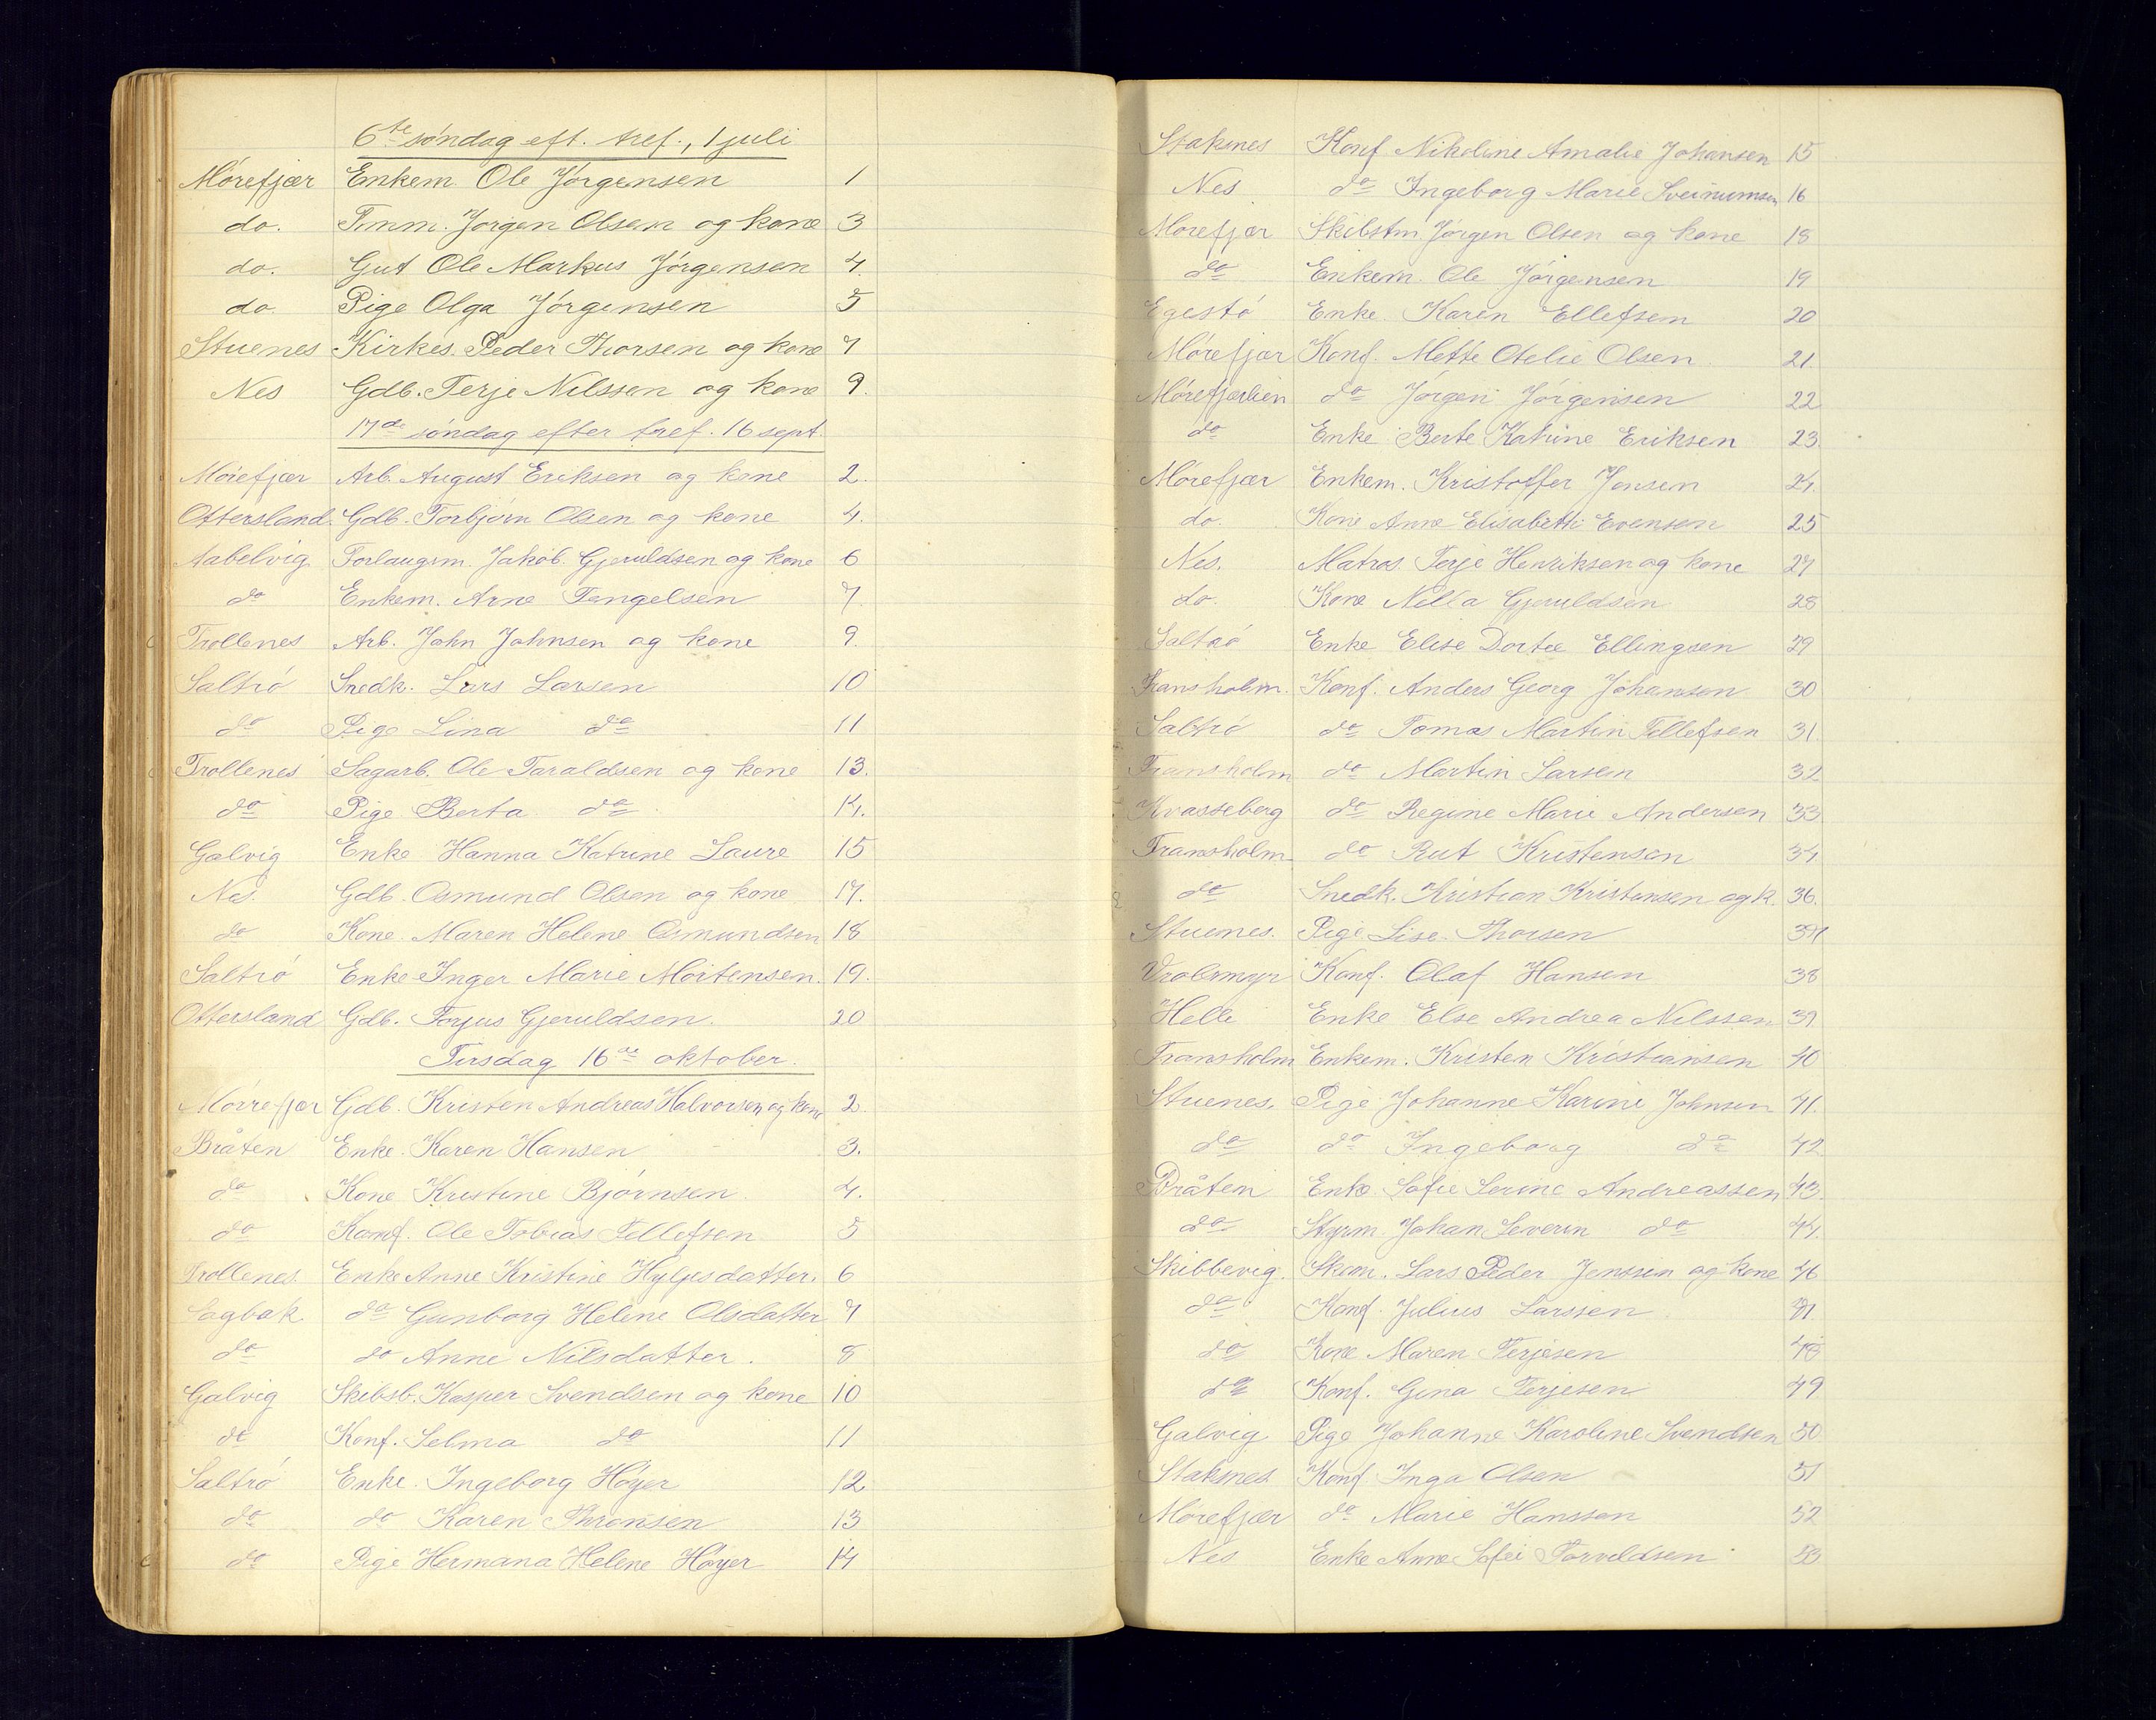 6te søndag eft. tref., 1 juli
Mørefjær Enkem. Ole Jørgensen 1
do. Tmm. Jørgen Olsen og kone 3
do. Gut Ole Markus Jørgensen 4.
do. Pige Olga Jørgensen 5
Stuenes Kirkes. Peder Thorsen og kone 7
Nes Gdb. Terje Nilssen og kone 9.
17de søndag efter tref. 16 sept.
Mørefjær Arb. August Eriksen og kone 2.
Ottersland Gdb. Torbjørn Olsen og kone 4.
Aabelvig Forlaugsm. Jakob Gjeruldsen og kone 6
do Enkem. Arne Tengelsen 7.
Trollenes Arb. John Johnsen og kone 9.
Saltrø Snedk. Lars Larsen 10
do Pige Lina do 11
Trollenes Sagarb. Ole Taraldsen og kone 13.
do Pige Berta do 14.
Galvig Enke Hanna Katrine Laure 15
Nes. Gdb. Osmund Olsen og kone 17.
do Kone Maren Helene Osmundsen 18
Saltrø Enke Inger Marie Mortensen. 19.
Ottersland Gdb. Torjus Gjeruldsen. 20
Tirsdag 16de oktober.
Mørrefjær Gdb. Kristen Andreas Halvorsen og kone 2.
Bråten Enke. Karen Hansen 3.
do Kone Kristine Bjørnsen 4.
do Konf. Ole Tobias Tellefsen 5
Trollenes Enke Anne Kristine Hyljesdatter. 6
Sagbak. do Gunborg Helene Olsdatter 7
do do Anne Nilsdatter. 8
Galvig Skibsb. Kasper Svendsen og kone 10
do Konf. Selma do 11
Saltrø Enke. Ingeborg Høyer 12
do do Karen Thronsen 13
do Pige Hermana Helene Høyer 14
Staknes Konf Nikoline Amalie Johansen 15
Nes do Ingeborg Marie Sveinumsen 16
Mørefjær Skibstm Jørgen Olsen og kone 18
do Enkem. Ole Jørgensen 19
Egestø Enke Karen Ellefsen 20
Mørefjær Konf. Mette Otelie Olsen 21.
Mørefjærheien do Jørgen Jørgensen 22
do Enke Berte Katrine Eriksen 23
Mørefjær Enkem. Kristoffer Jonsen 24.
do. Kone Anne Elisabeth Evensen 25
Nes. Matros. Terje Henriksen og kone 27
do. Kone Nilla Gjeruldsen 28
Saltrø Enke Elise Dortee Ellingsen 29
Fransholm. Konf. Anders Georg Johansen 30
Saltrø do Tomas Martin Tellefsen 31.
Fransholm do Martin Larsen 32
Kvasseberg do Regine Marie Andersen 33
Fransholm do Rut Kristensen 34
do Snedk. Kristian Kristensen og k. 36.
Stuenes. Pige Lise Thorsen 37
Vrolsmyr Konf. Olaf Hansen 38
Helle Enke Else Andrea Nilssen 39
Fransholm Enkem. Kristen Kristiansen 40
Stuenes. Pige Johanne Karine Johnsen 41.
do do Ingeborg do 42
Bråten Enke Sofie Serine Andreassen 43.
do Styrm. Johan Severin do 44.
Skibbevig. Skom. Lars Peder Jenssen og kone 46
do Konf. Julius Larssen 47.
do Kone Maren Terjesen 48
do Konf. Gina Terjesen 49
Galvig Pige Johanne Karoline Svendsen 50
Staknes Konf Inga Olsen 51
Mørefjær do Marie Hanssen 52
Nes Enke Anne Sofie Torvildsen 53